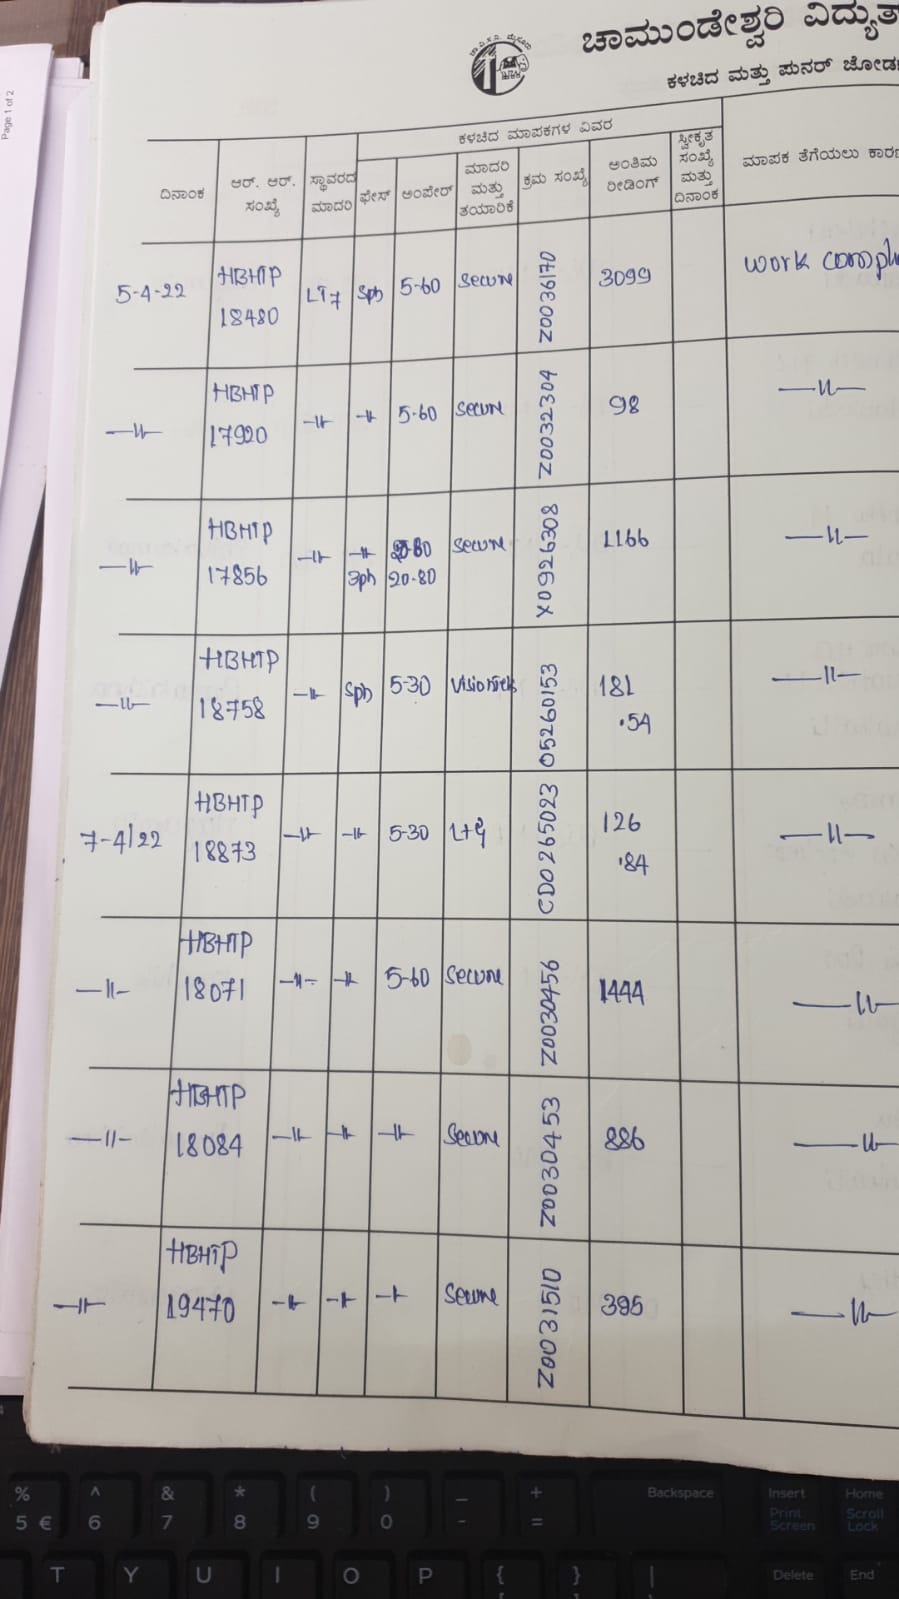 Page 1 of 2
ಚಾಮುಂಡೇಶ್ವರಿ ವಿದ್ಯುತ
ಕಳಚಿದ ಮತ್ತು ಪುನರ್ ಜೋಡ
ಕಳಚಿದ ಮಾಪಕಗಳ ವಿವರ
ದಿನಾಂಕ ಆರ್. ಆರ್. ಸಂಖ್ಯೆ ಸ್ಥಾವರದ ಮಾದರಿ ಫೇಸ್ ಅಂಪೇರ್ ಮಾದರಿ ಮತ್ತು ತಯಾರಿಕೆ ಕ್ರಮ ಸಂಖ್ಯೆ ಅಂತಿಮ ರೀಡಿಂಗ್ ಸ್ವೀಕೃತ ಸಂಖ್ಯೆ ಮತ್ತು ದಿನಾಂಕ ಮಾಪಕ ತೆಗೆಯಲು ಕಾರಣ
5-4-22 HBHTP 18480 LT7 Sph 5-60 Secure Z0036170 3099 work comple
—〃— HBHTP 17920 —〃— —〃— 5-60 Secure Z0032304 98 —〃—
—〃— HBHTP 17856 —〃— 3ph 20-80 Secure X0926308 1166 —〃—
—〃— HBHTP 18758 —〃— Sph 5-30 Visiontek 05260153 181 .54 —〃—
7-4/22 HBHTP 18873 —〃— —〃— 5-30 L+G CD0265023 126 .84 —〃—
—〃— HBHTP 18071 —〃— —〃— 5-60 Secure Z0030456 1444 —〃—
—〃— HBHTP 18084 —〃— —〃— —〃— Secure Z0030453 886 —〃—
—〃— HBHTP 19470 —〃— —〃— —〃— Secure Z0031510 395 —〃—
% ^ & * ( ) _ + Backspace Insert Home
5 € 6 7 8 9 0 - = Print Screen Scroll Lock
T Y U I O P { } | Delete End